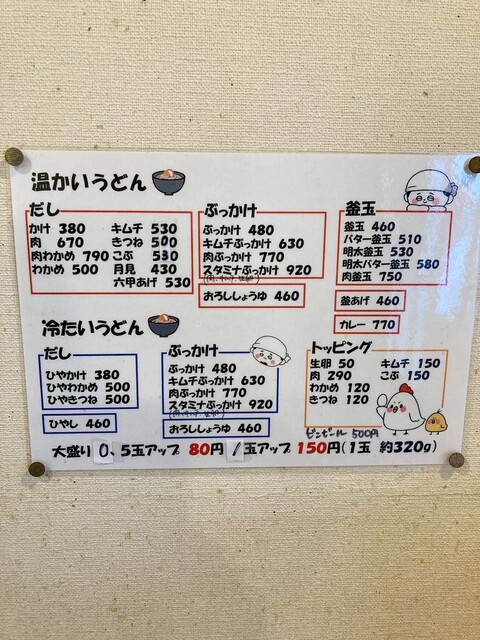 温かいうどん
だし
かけ 380 キムチ 530
肉 670 きつね 500
肉わかめ 790 こぶ 530
わかめ 500 月見 430
六甲あげ 530
ぶっかけ
ぶっかけ 480
キムチぶっかけ 630
肉ぶっかけ 770
スタミナぶっかけ 920
おろししょうゆ 460
釜玉
釜玉 460
バター釜玉 510
明太釜玉 530
明太バター釜玉 580
肉釜玉 750
釜あげ 460
カレー 770
冷たいうどん
だし
ひやかけ 380
ひやわかめ 500
ひやきつね 500
ひやし 460
ぶっかけ
ぶっかけ 480
キムチぶっかけ 630
肉ぶっかけ 770
スタミナぶっかけ 920
おろししょうゆ 460
トッピング
生卵 50 キムチ 150
肉 290 こぶ 150
わかめ 120
きつね 120
ビンビール 500円
大盛り 0、5玉アップ 80円 1玉アップ 150円(1玉 約320g)